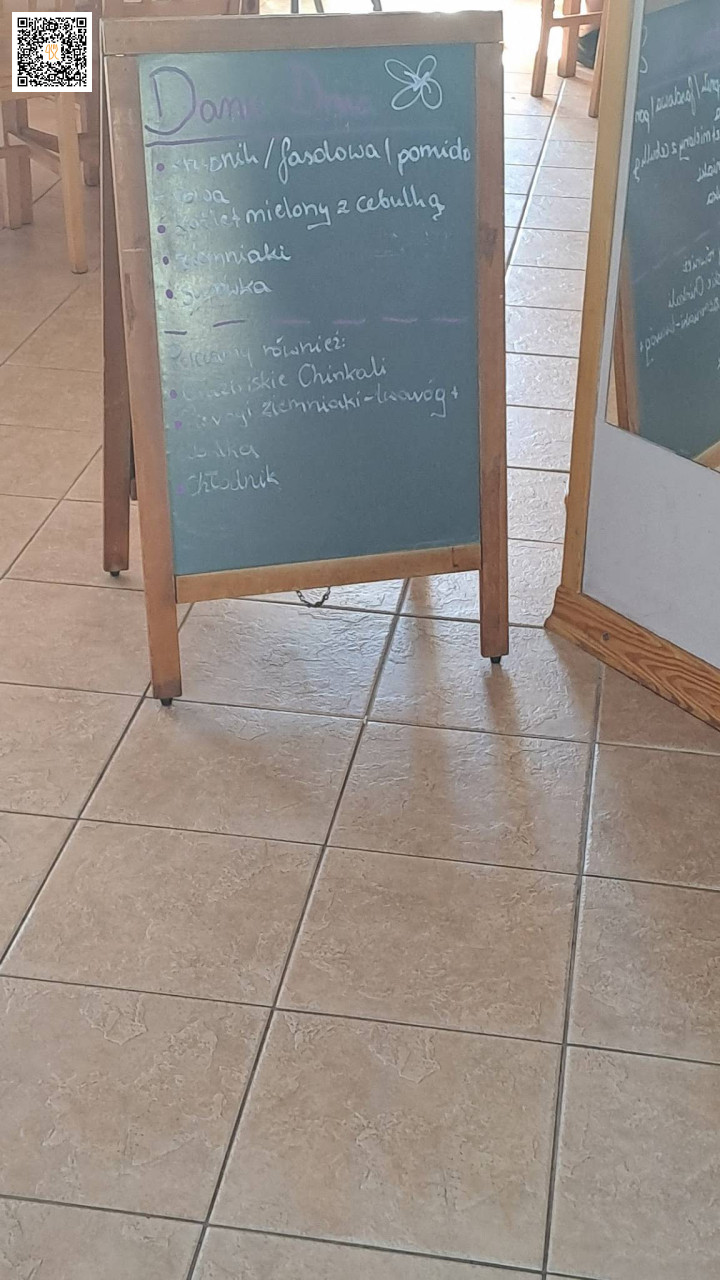 Danie Dnia
• krupnik / fasolowa / pomido
rowa
• kotlet mielony z cebulką
• ziemniaki
• surówka
Polecamy również:
• Gruzińskie Chinkali
• Pierogi ziemniaki-twaróg +
• Chłodnik